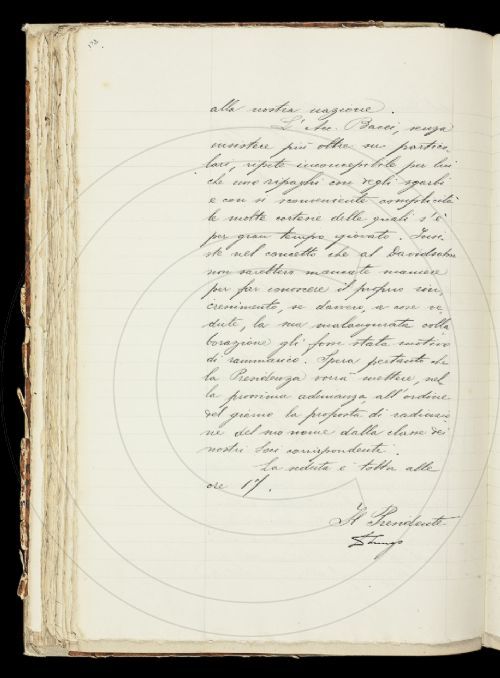 alla nostra nazione.
L'Acc. Bacci, senza
insistere più oltre su partico-
lari, ripete inconcepibile per lui
che uno ripaghi con degli sgarbi
e con sì sconveniente complicità
le molte cortesie delle quali s'è
per gran tempo giovato. Insi-
ste nel concetto che al Davidsohn
non sarebbero mancate maniere
per far conoscere il proprio rin-
crescimento, se davvero, a cose ve-
dute, la sua malaugurata colla-
borazione gli fosse stata motivo
di rammarico. Spera pertanto che
la Presidenza vorrà mettere, nel-
la prossima adunanza, all'ordine
del giorno la proposta di radiazio-
ne del suo nome dalla classe dei
nostri Soci corrispondenti.
La seduta è tolta alle
ore 17.
Il Presidente